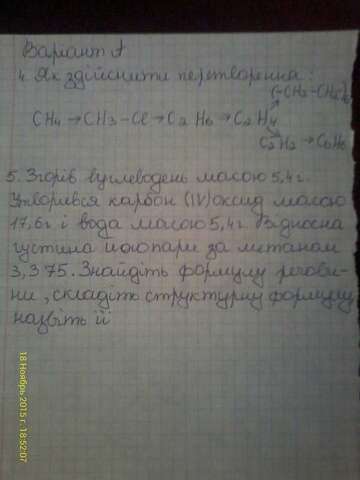 Варіант А
4. Як здійснити перетворення:
(-CH2-CH2-)n
CH4 → CH3-Cl → C2H6 → C2H4
C2H2 → C6H6
5. Згорів вуглеводень масою 5,4г.
Утворився карбон (IV) оксид масою
17,6г і вода масою 5,4г. Відносна
густина його пари за метаном
3,375. Знайдіть формулу речови-
ни, складіть структурну формулу
назвіть її
18 Ноябрь 2015 г. 18:52:07